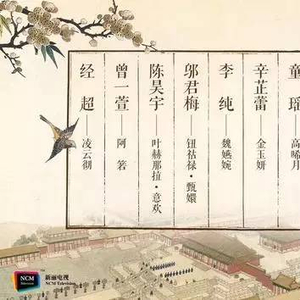 童瑶
高晞月
辛芷蕾
金玉妍
李纯
魏嬿婉
邬君梅
钮祜禄·甄嬛
陈昊宇
叶赫那拉·意欢
曾一萱
阿箬
经超
凌云彻
NCM
新丽电视
NCM Television